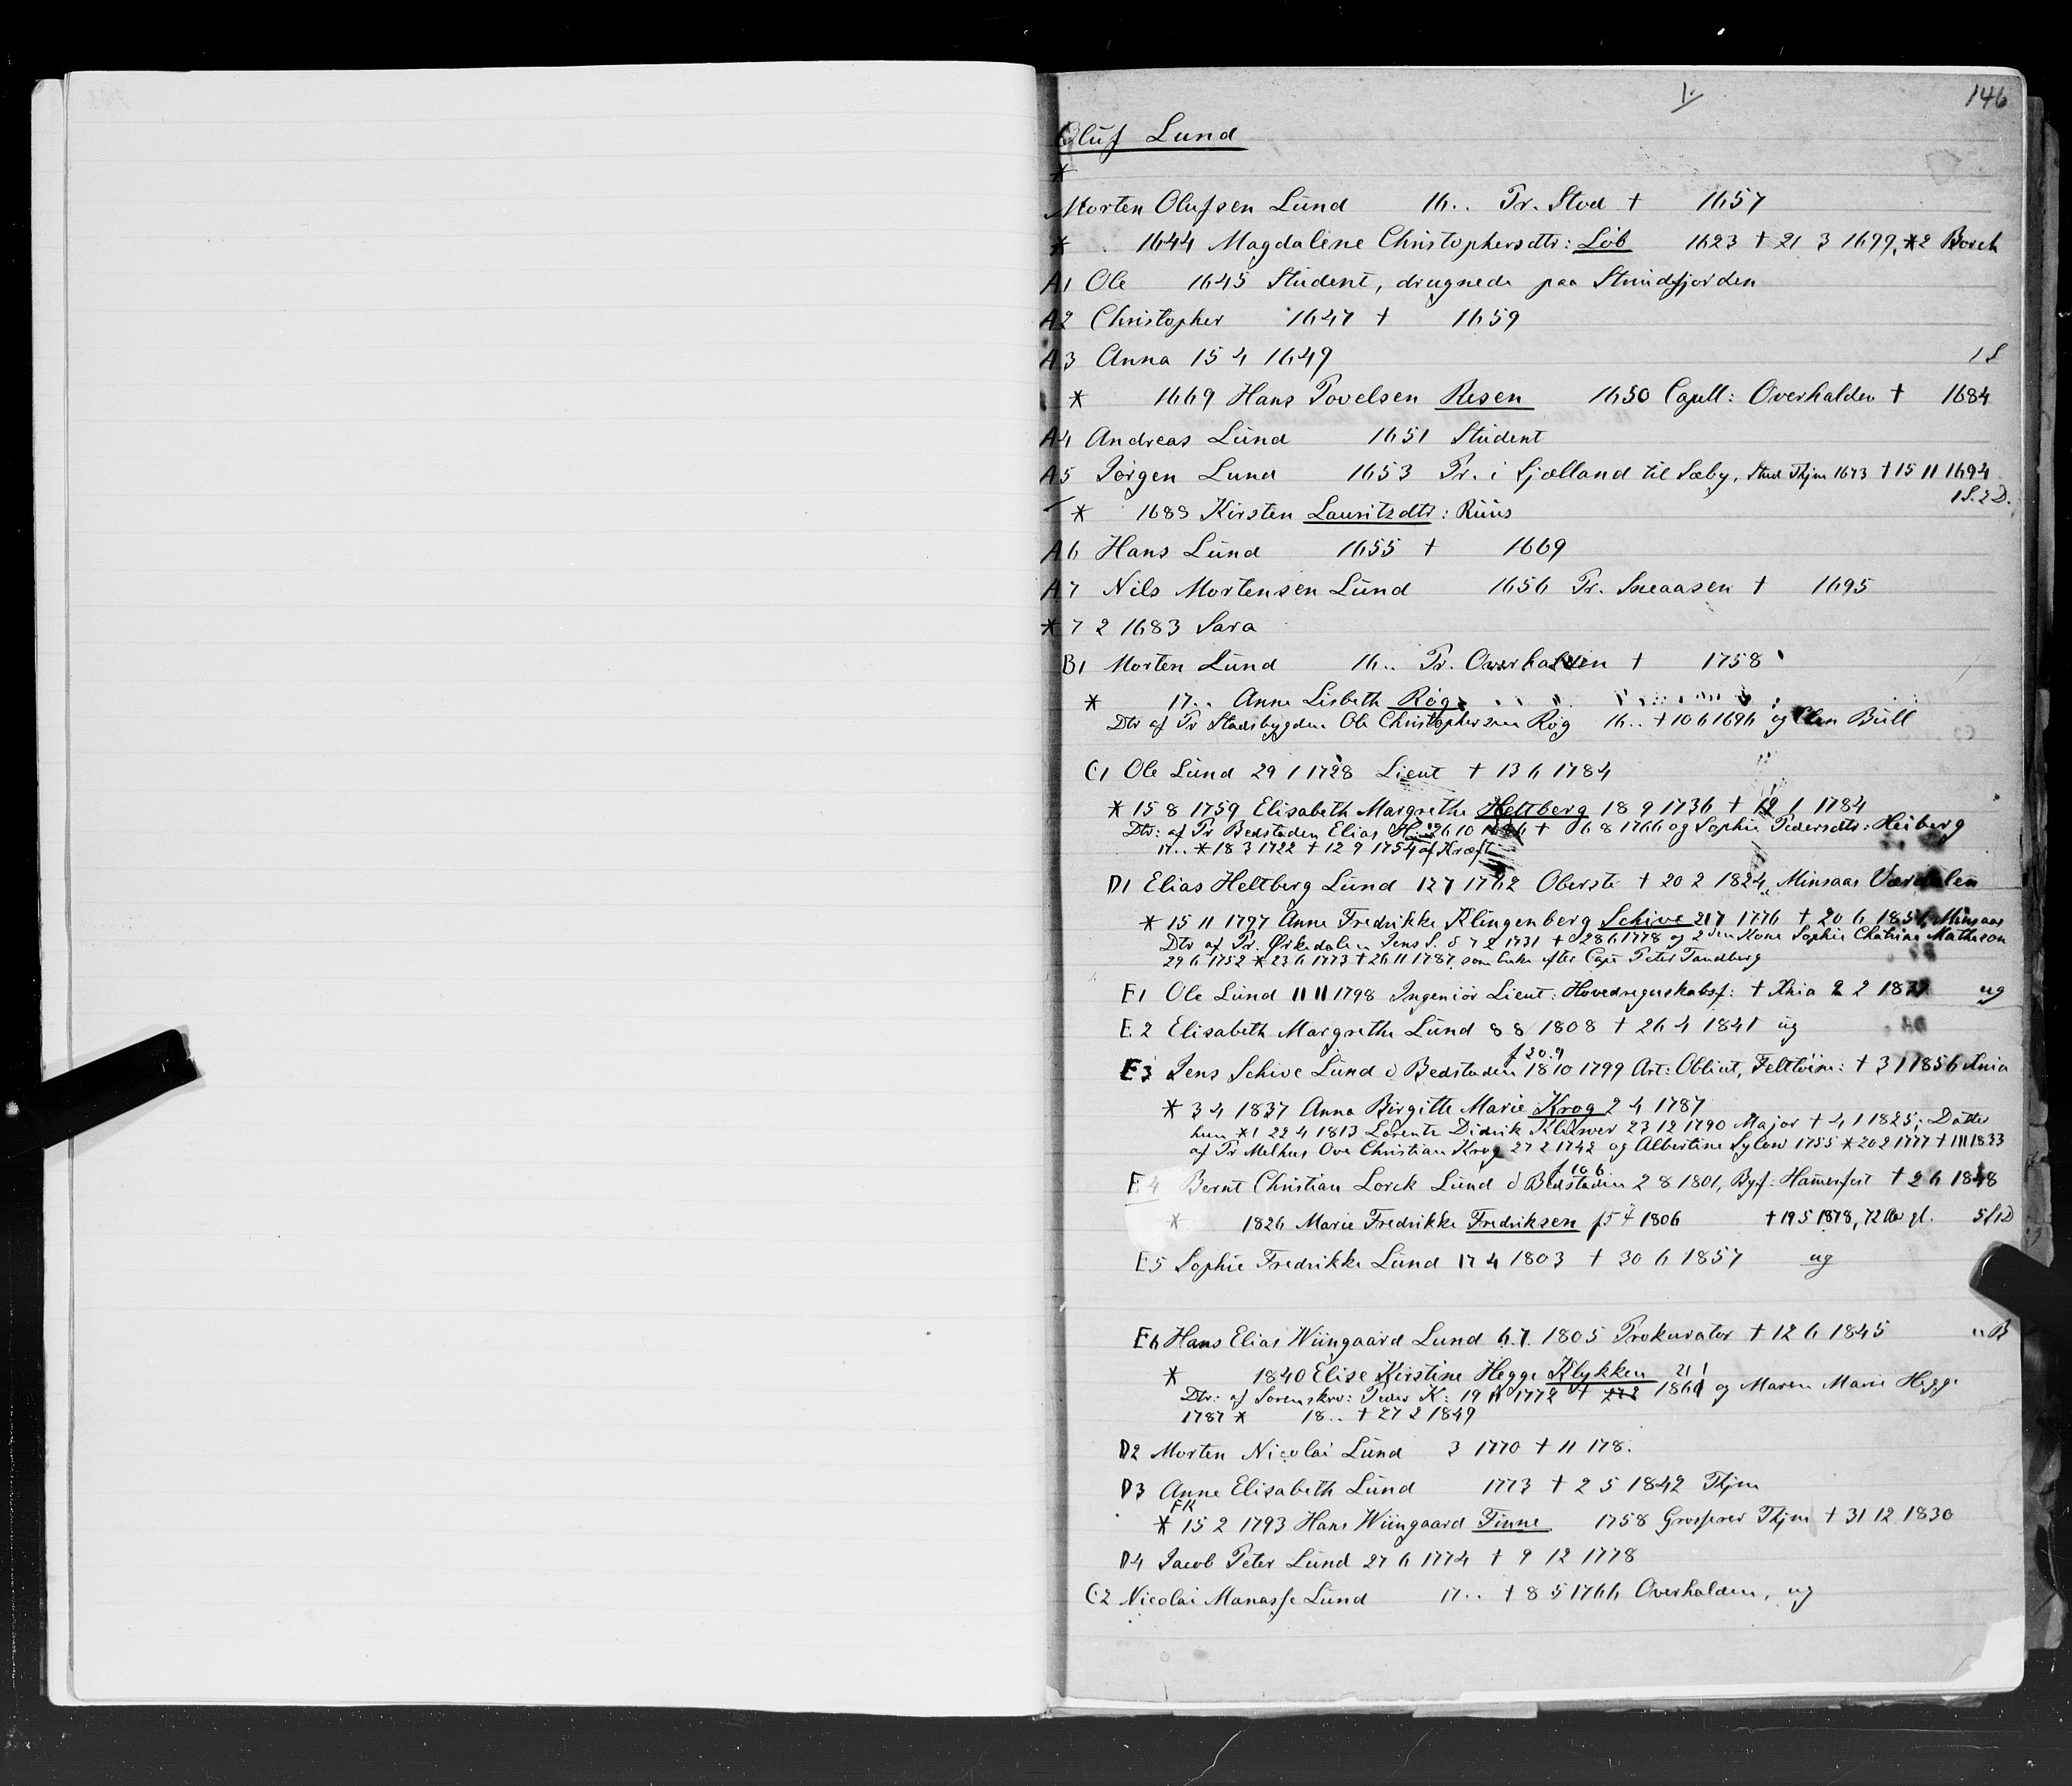 1. 146
Oluf Lund
*
Morten Olufsen Lund 16.. Pr. Stod † 1657
* 1644 Magdalene Christophersdtr: Løb 1623 † 21 3 1699, *2 Borch
A1 Ole 1645 Student, drugnede paa Strindfjorden
A2 Christopher 1647 † 1659
A3 Anna 15 4 1649 1 S
* 1669 Hans Povelsen Resen 1650 Capell: Overhalden † 1684
A4 Andreas Lund 1651 Student
A5 Jørgen Lund 1653 Pr. i Sjælland til Sæby, Stud Thjm 1673 † 15 11 1694
1 S. 2 D.
* 1688 Kirsten Lauritzdtr: Ruus
A6 Hans Lund 1655 † 1669
A7 Nils Mortensen Lund 1656 Pr. Sneaasen † 1695
* 7 2 1683 Sara
B1 Morten Lund 16.. Pr. Overhalden † 1758
* 17.. Anne Lisbeth Røg
Dtr af Pr Stadsbygden Ole Christophersen Røg 16.. † 10 6 1696 og Elen Bull
C1 Ole Lund 29 1 1728 Lieut † 13 6 1784
* 15 8 1759 Elisabeth Margrethe Heltberg 18 9 1736 † 12 1 1784
Dtr: af Pr Bedstaden Elias H: 26 10 † 6 8 1766 og Sophie Pedersdtr: Heiberg
17.. * 18 3 1722 † 12 9 1754 af Kræft
D1 Elias Heltberg Lund 12 7 1762 Oberste † 20 2 1824, Minsaas Værdalen
* 15 11 1797 Anne Fredrikke Klingenberg Schive 21 7 1776 † 20 6 1851, Minsaas
Dtr af Pr. Ørkedalen Jens S. d 7 2 1731 † 28 6 1778 og 2den Kone Sophie Chatrine Matheson
29 6 1752 * 23 6 1773 † 26 11 1787 som Enke efter Capt Peter Tandberg
E1 Ole Lund 11 11 1798 Ingeniør Lieut: Hovedregnskabsf: † Xnia 2 2 ug
E2 Elisabeth Margrethe Lund 8 8 1808 † 26 4 1841 ug
f 20.9
E3 Jens Schive Lund d Bedstaden 18 10 1799 Art: Oblieut, Felttøim: † 3 1 1856 Xnia
* 3 4 1837 Anna Birgitte Marie Krog 2 4 1787
hun *1 22 4 1813 Lorents Didrik Klüwer 23 12 1790 Major † 4 1 1825; Datter
af Pr Melhus Ove Christian Krog 27 2 1742 og Albertine Sylow 1755 * 20 2 1777 † 1 11 1833
f 10 6
E4 Bernt Christian Lorck Lund d Bedstaden 2 8 1801, Byf: Hamerfest † 2 6 1848
* 1826 Marie Fredrikke Fredriksen f 5 4 1806 † 19 5 1878, 72 Aar gl. 5 S 1 D
E5 Sophie Fredrikke Lund 17 4 1803 † 30 6 1857 ug
E6 Hans Elias Wiingaard Lund 6.7. 1805 Prokurator † 12 6 1845 " B
* 1840 Elise Kirstine Hegge Klykken 21 1
Dtr: af Sorenskrv: Peder K: 19 11 1772 † 1861 og Maren Marie Hegge
1787 * 18.. † 27 2 1849
D2 Morten Nicolai Lund 3 1770 † 11 178.
D3 Anne Elisabeth Lund 1773 † 2 5 1842 Thjm
FK
* 15 2 1793 Hans Wiingaard Finne 1758 Grosserer Thjm † 31 12 1830
D4 Jacob Peter Lund 27 6 1774 † 9 12 1778
C2 Nicolai Manasse Lund 17.. † 8 5 1766 Overhalden, ug